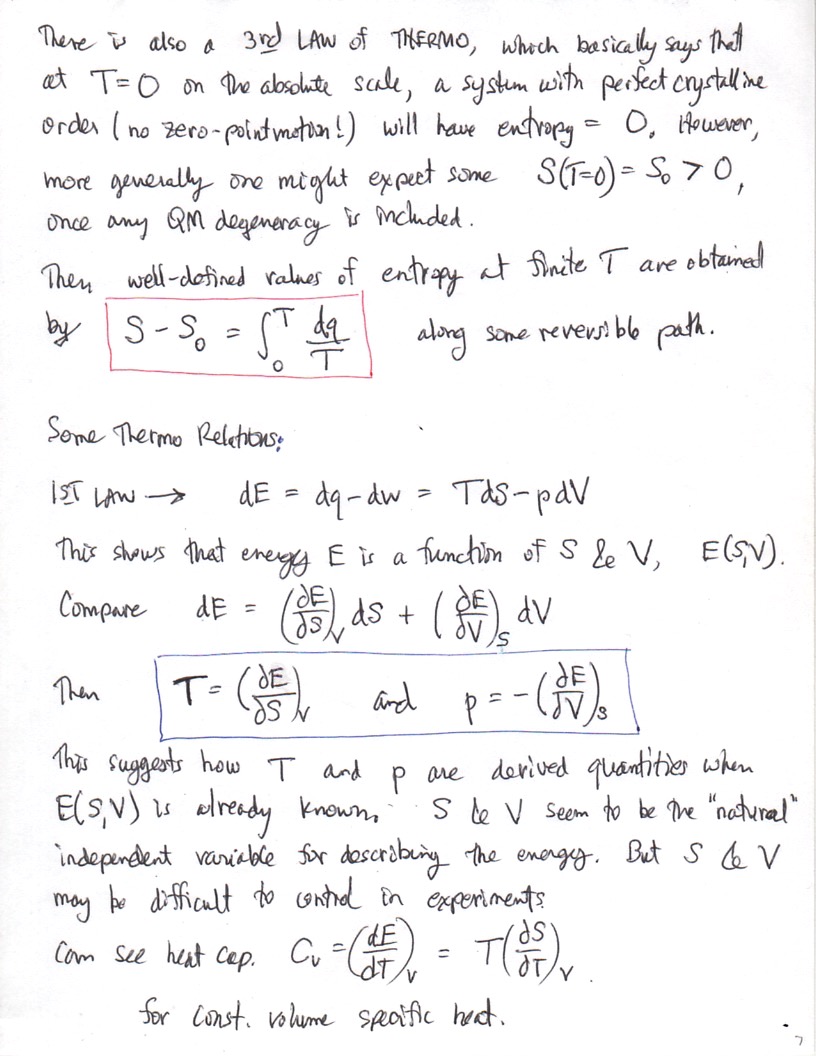 There is also a 3rd LAW of THERMO, which basically says that
at T=0 on the absolute scale, a system with perfect crystalline
order (no zero-point motion!) will have entropy = 0. However,
more generally one might expect some S(T=0) = S₀ > 0,
once any QM degeneracy is included.
Then well-defined values of entropy at finite T are obtained
by S - S₀ = ∫₀ᵀ dq/T along some reversible path.
Some Thermo Relations:
1ST LAW → dE = dq - dw = TdS - pdV
This shows that energy E is a function of S & V, E(S,V).
Compare dE = (∂E/∂S)_V dS + (∂E/∂V)_S dV
Then T = (∂E/∂S)_V and p = -(∂E/∂V)_S
This suggests how T and p are derived quantities when
E(S,V) is already known. S & V seem to be the "natural"
independent variable for describing the energy. But S & V
may be difficult to control in experiments
Can see heat cap. Cᵥ = (dE/dT)_V = T(∂S/∂T)_V
for const. volume specific heat.
7